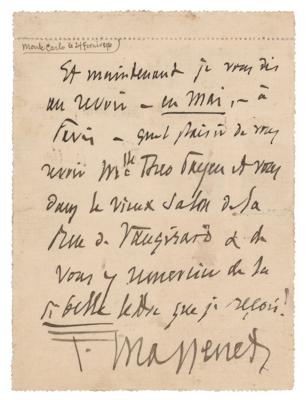 Monte Carlo le 24 février
Et maintenant je vous dis
au revoir — en Mai, — à
Paris — quel plaisir de vous
revoir Mlle Bres et vous
dans le vieux Salon de la
Rue de Vaugirard & de
vous y remercier de la
si belle lettre que je reçois!
J. Massenet